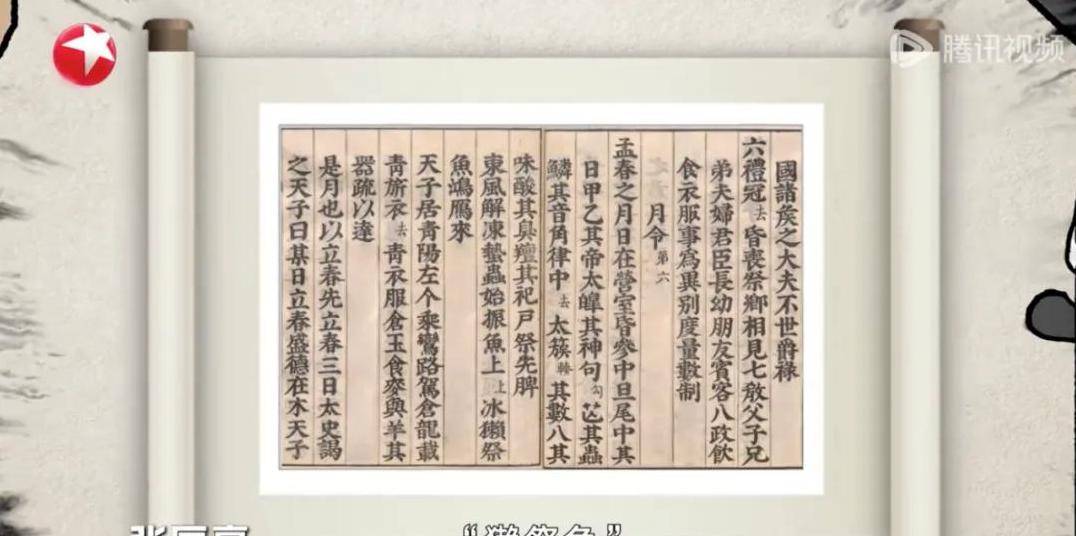 腾讯视频
國諸矦之大夫不世爵祿
六禮冠去昏喪祭鄉相見七敎父子兄
弟夫婦君臣長幼朋友賓客八政飲
食衣服事爲異別度量數制
月令第六
孟春之月日在營室昏參中旦尾中其
日甲乙其帝太皥其神句勾芒其蟲
鱗其音角律中去太簇其數八其
味酸其臭羶其祀戸祭先脾
東風解凍蟄蟲始振魚上上冰獺祭
魚鴻鴈來
天子居青陽左个乘鸞路駕倉龍載
青旂衣去青衣服倉玉食麥與羊其
器疏以達
是月也以立春先立春三日太史謁
之天子曰某日立春盛德在木天子
“獺祭魚”